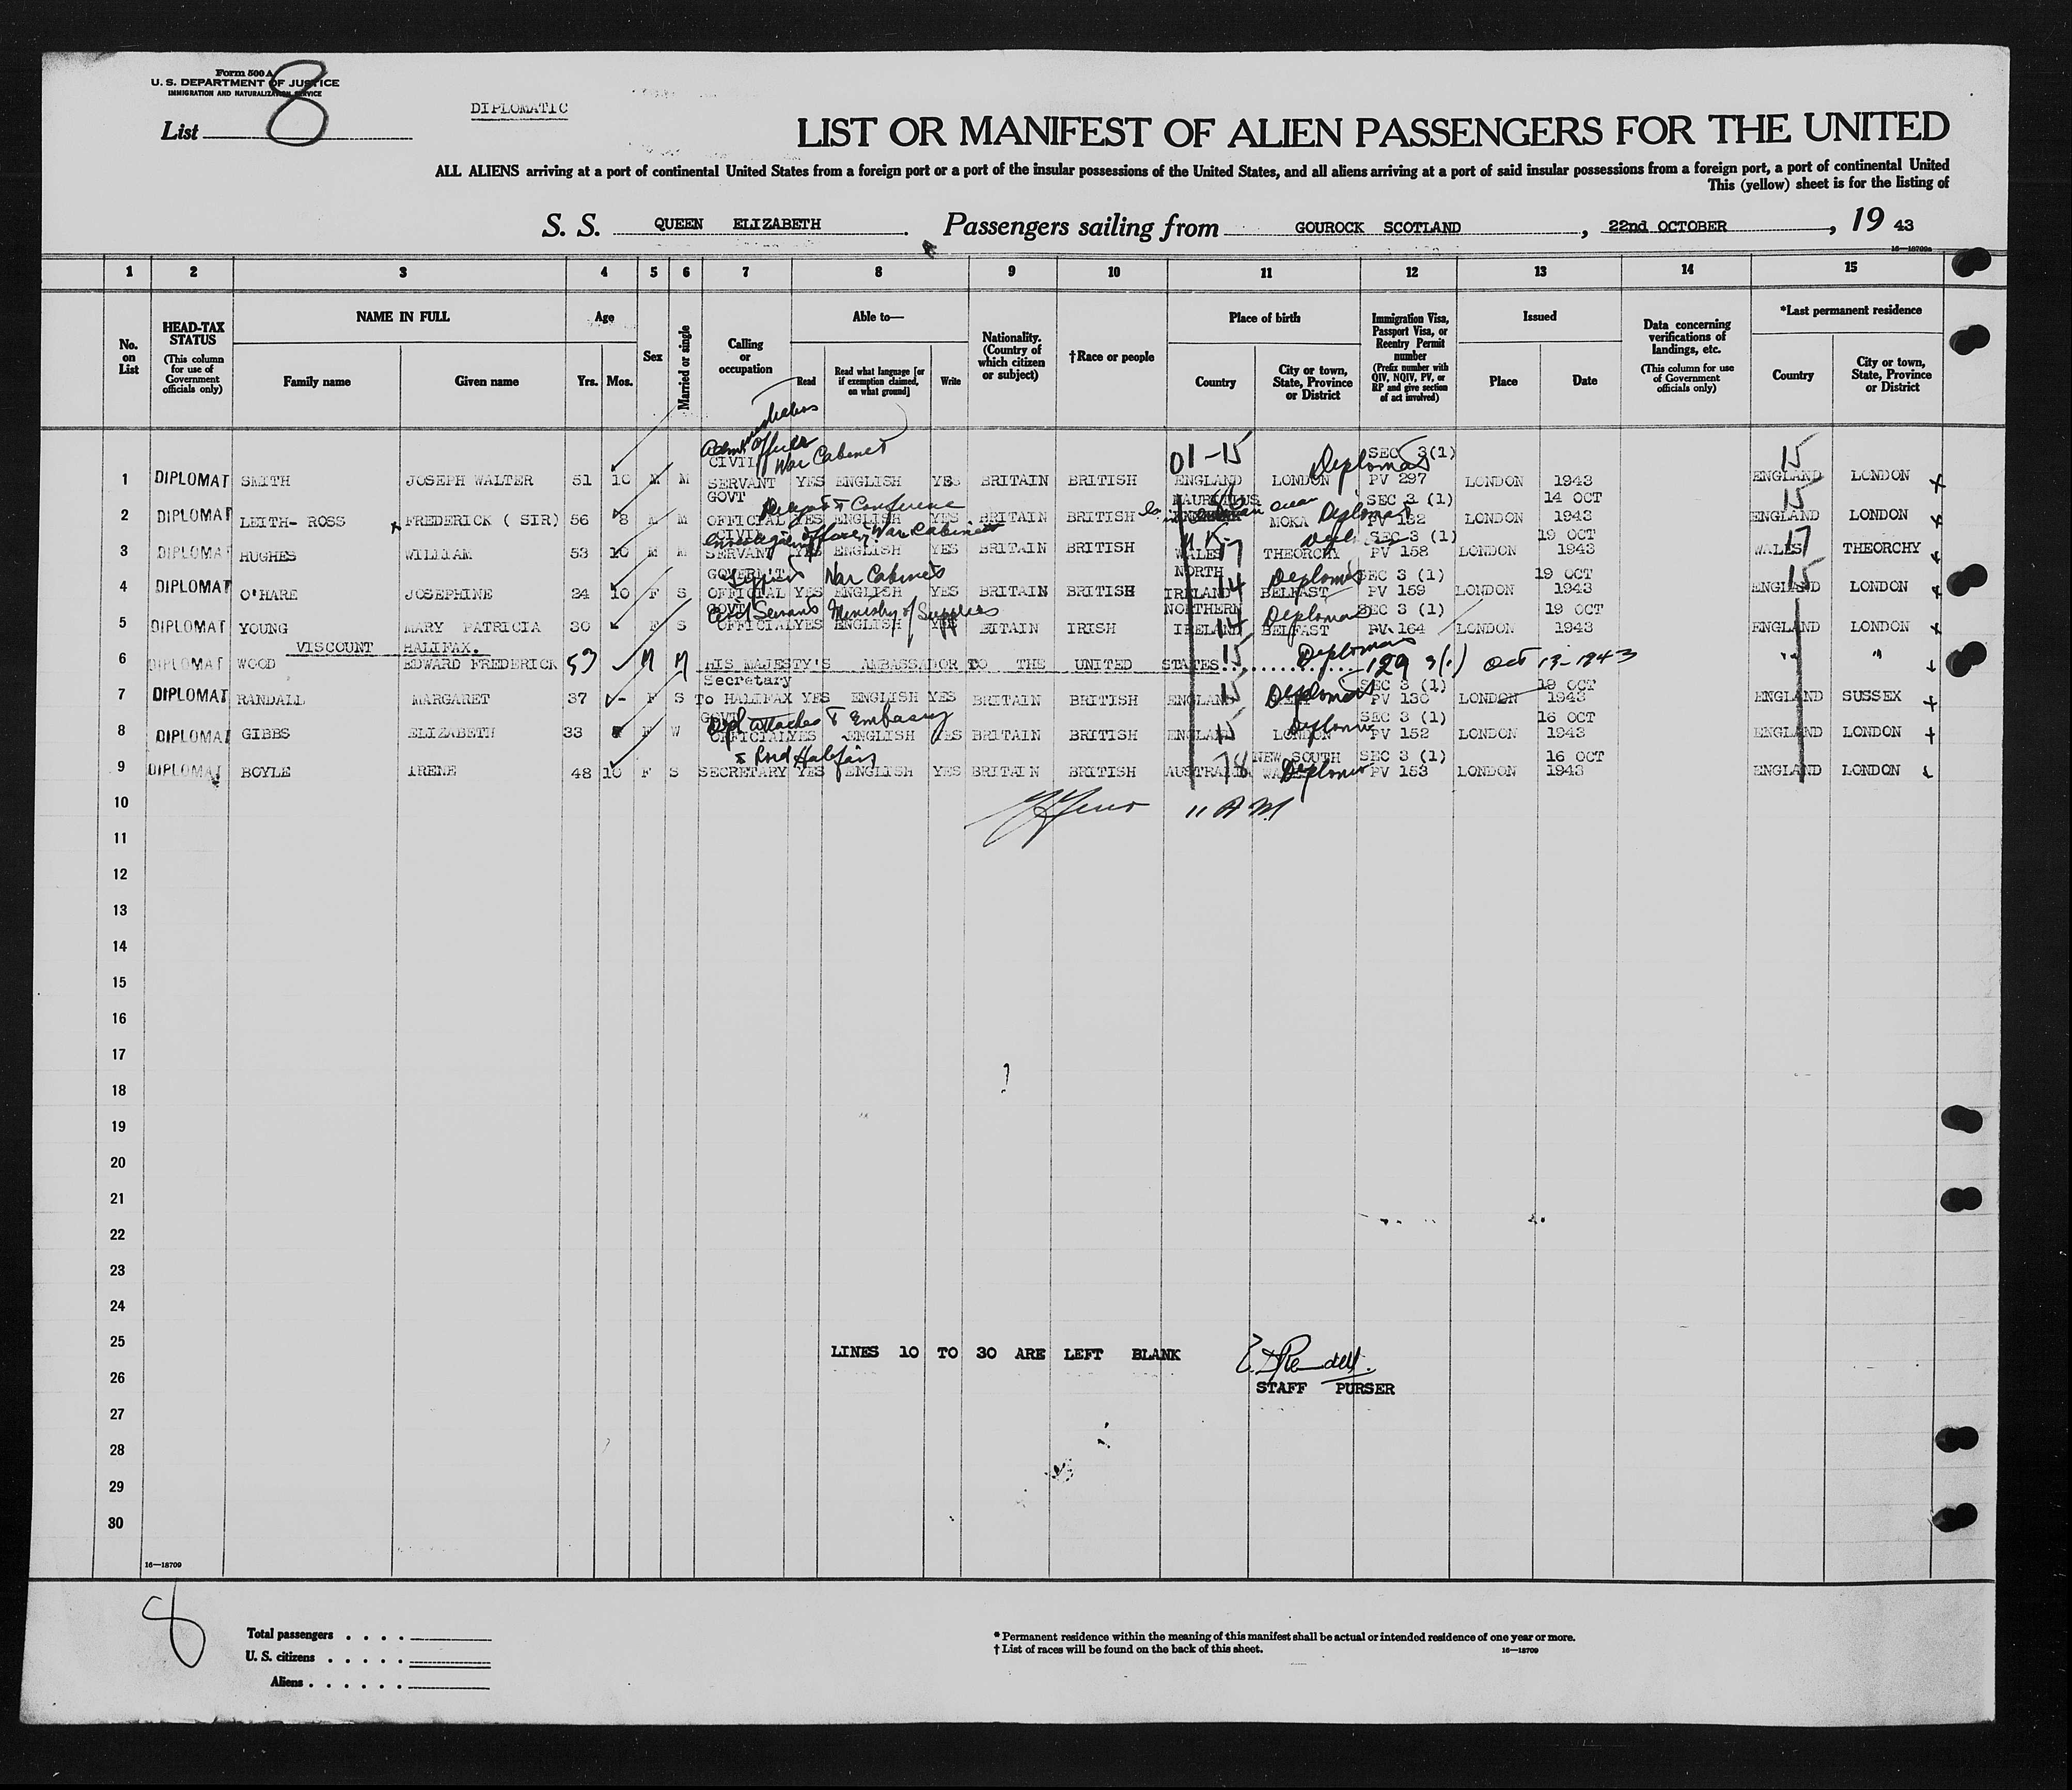 Form 500 A
U. S. DEPARTMENT OF JUSTICE
IMMIGRATION AND NATURALIZATION SERVICE
List 8
DIPLOMATIC
LIST OR MANIFEST OF ALIEN PASSENGERS FOR THE UNITED
ALL ALIENS arriving at a port of continental United States from a foreign port or a port of the insular possessions of the United States, and all aliens arriving at a port of said insular possessions from a foreign port, a port of continental United
This (yellow) sheet is for the listing of
S. S. QUEEN ELIZABETH . Passengers sailing from GOUROCK SCOTLAND , 22nd OCTOBER , 19 43
16—18709a
1 2 3 4 5 6 7 8 9 10 11 12 13 14 15
No. on List
HEAD-TAX STATUS
(This column for use of Government officials only)
NAME IN FULL
Family name
Given name
Age
Yrs. Mos.
Sex
Married or single
Calling or occupation
Able to—
Read
Read what language [or if exemption claimed, on what ground]
Write
Nationality. (Country of which citizen or subject)
†Race or people
Place of birth
Country
City or town, State, Province or District
Immigration Visa, Passport Visa, or Reentry Permit number
(Prefix number with QIV, NQIV, PV, or RP and give section of act involved)
Issued
Place
Date
Data concerning verifications of landings, etc.
(This column for use of Government officials only)
*Last permanent residence
Country
City or town, State, Province or District
Officer War Cabinet 01-15 Diplomat 15
CIVIL SEC 3(1)
1 DIPLOMAT SMITH JOSEPH WALTER 51 10 M M SERVANT YES ENGLISH YES BRITAIN BRITISH ENGLAND LONDON PV 297 LONDON 1943 ENGLAND LONDON
GOVT MAURITIUS SEC 3 (1) 14 OCT 15
2 DIPLOMAT LEITH- ROSS FREDERICK ( SIR) 56 8 M M OFFICIAL YES ENGLISH YES BRITAIN BRITISH MOKA Diplomat PV 132 LONDON 1943 ENGLAND LONDON
CIVIL War Cabinet SEC 3 (1) 19 OCT 17
3 DIPLOMAT HUGHES WILLIAM 53 10 M M SERVANT YES ENGLISH YES BRITAIN BRITISH WALES THEORCHY PV 158 LONDON 1943 WALES THEORCHY
GOVERN'T Typist War Cabinet NORTH 14 Diplomat SEC 3 (1) 19 OCT 15
4 DIPLOMAT O'HARE JOSEPHINE 24 10 F S OFFICIAL YES ENGLISH YES BRITAIN BRITISH IRELAND BELFAST PV 159 LONDON 1943 ENGLAND LONDON
GOVT Civil Servant Ministry of Supplies NORTHERN 14 Diplomat SEC 3 (1) 19 OCT
5 DIPLOMAT YOUNG MARY PATRICIA 30 F S OFFICIAL YES ENGLISH YES BITAIN IRISH IRELAND BELFAST PV. 164 LONDON 1943 ENGLAND LONDON
VISCOUNT HALIFAX.
6 DIPLOMAT WOOD EDWARD FREDERICK 53 M M HIS MAJESTY'S AMBASSADOR TO THE UNITED STATES 15 Diplomat 129 3(1) Oct 13-1943 " "
Secretary 15 Diplomat SEC 3 (1) 19 OCT
7 DIPLOMAT RANDALL MARGARET 37 - F S To HALIFAX YES ENGLISH YES BRITAIN BRITISH ENGLAND PV 130 LONDON 1943 ENGLAND SUSSEX
GOVT attaches to Embassy 15 Diplomat SEC 3 (1) 16 OCT
8 DIPLOMAT GIBBS ELIZABETH 33 F W OFFICIAL YES ENGLISH YES BRITAIN BRITISH ENGLAND LONDON PV 152 LONDON 1943 ENGLAND LONDON
to Lord Halifax 78 NEW SOUTH Diplomat SEC 3 (1) 16 OCT
9 DIPLOMAT BOYLE IRENE 48 10 F S SECRETARY YES ENGLISH YES BRITAIN BRITISH AUSTRALIA PV 153 LONDON 1943 ENGLAND LONDON
10
11 A M
11
12
13
14
15
16
17
18
19
20
21
22
23
24
25
LINES 10 TO 30 ARE LEFT BLANK
26
STAFF PURSER
27
28
29
30
16—18709
8
Total passengers . . . .
U. S. citizens . . . . .
Aliens . . . . . .
* Permanent residence within the meaning of this manifest shall be actual or intended residence of one year or more.
† List of races will be found on the back of this sheet.
16—18709